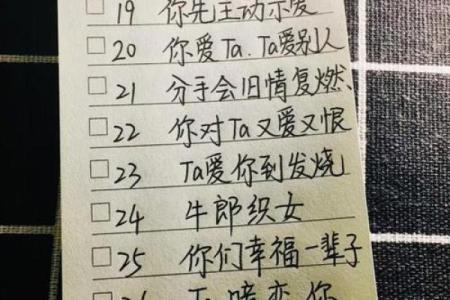 □19 你先主动示爱
□20 你爱Ta.Ta爱别人
□21 分手会旧情复燃、
□22 你对Ta又爱又恨
□23 Ta爱你到发烧
□24 牛郎织女
□25 你们幸福一辈子
Ta暗恋你